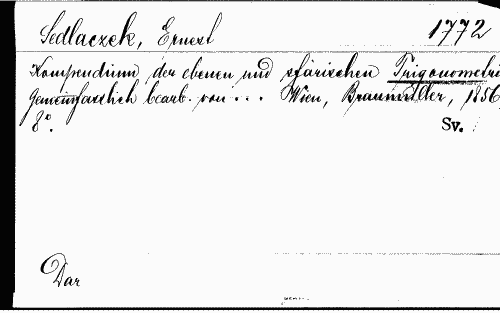 Sedlaczek, Ernest 1772
Kompendium der ebenen und sfärischen Trigonometri
gemeinfasslich bearb. von ... Wien, Braumüller, 1856,
8°. Sv.
Dar